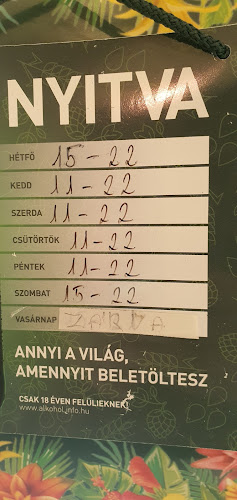 NYITVA
HÉTFŐ 15-22
KEDD 11-22
SZERDA 11-22
CSÜTÖRTÖK 11-22
PÉNTEK 11-22
SZOMBAT 15-22
VASÁRNAP ZÁRVA
ANNYI A VILÁG,
AMENNYIT BELETÖLTESZ
CSAK 18 ÉVEN FELÜLIEKNEK!
www.alkohol_info.hu